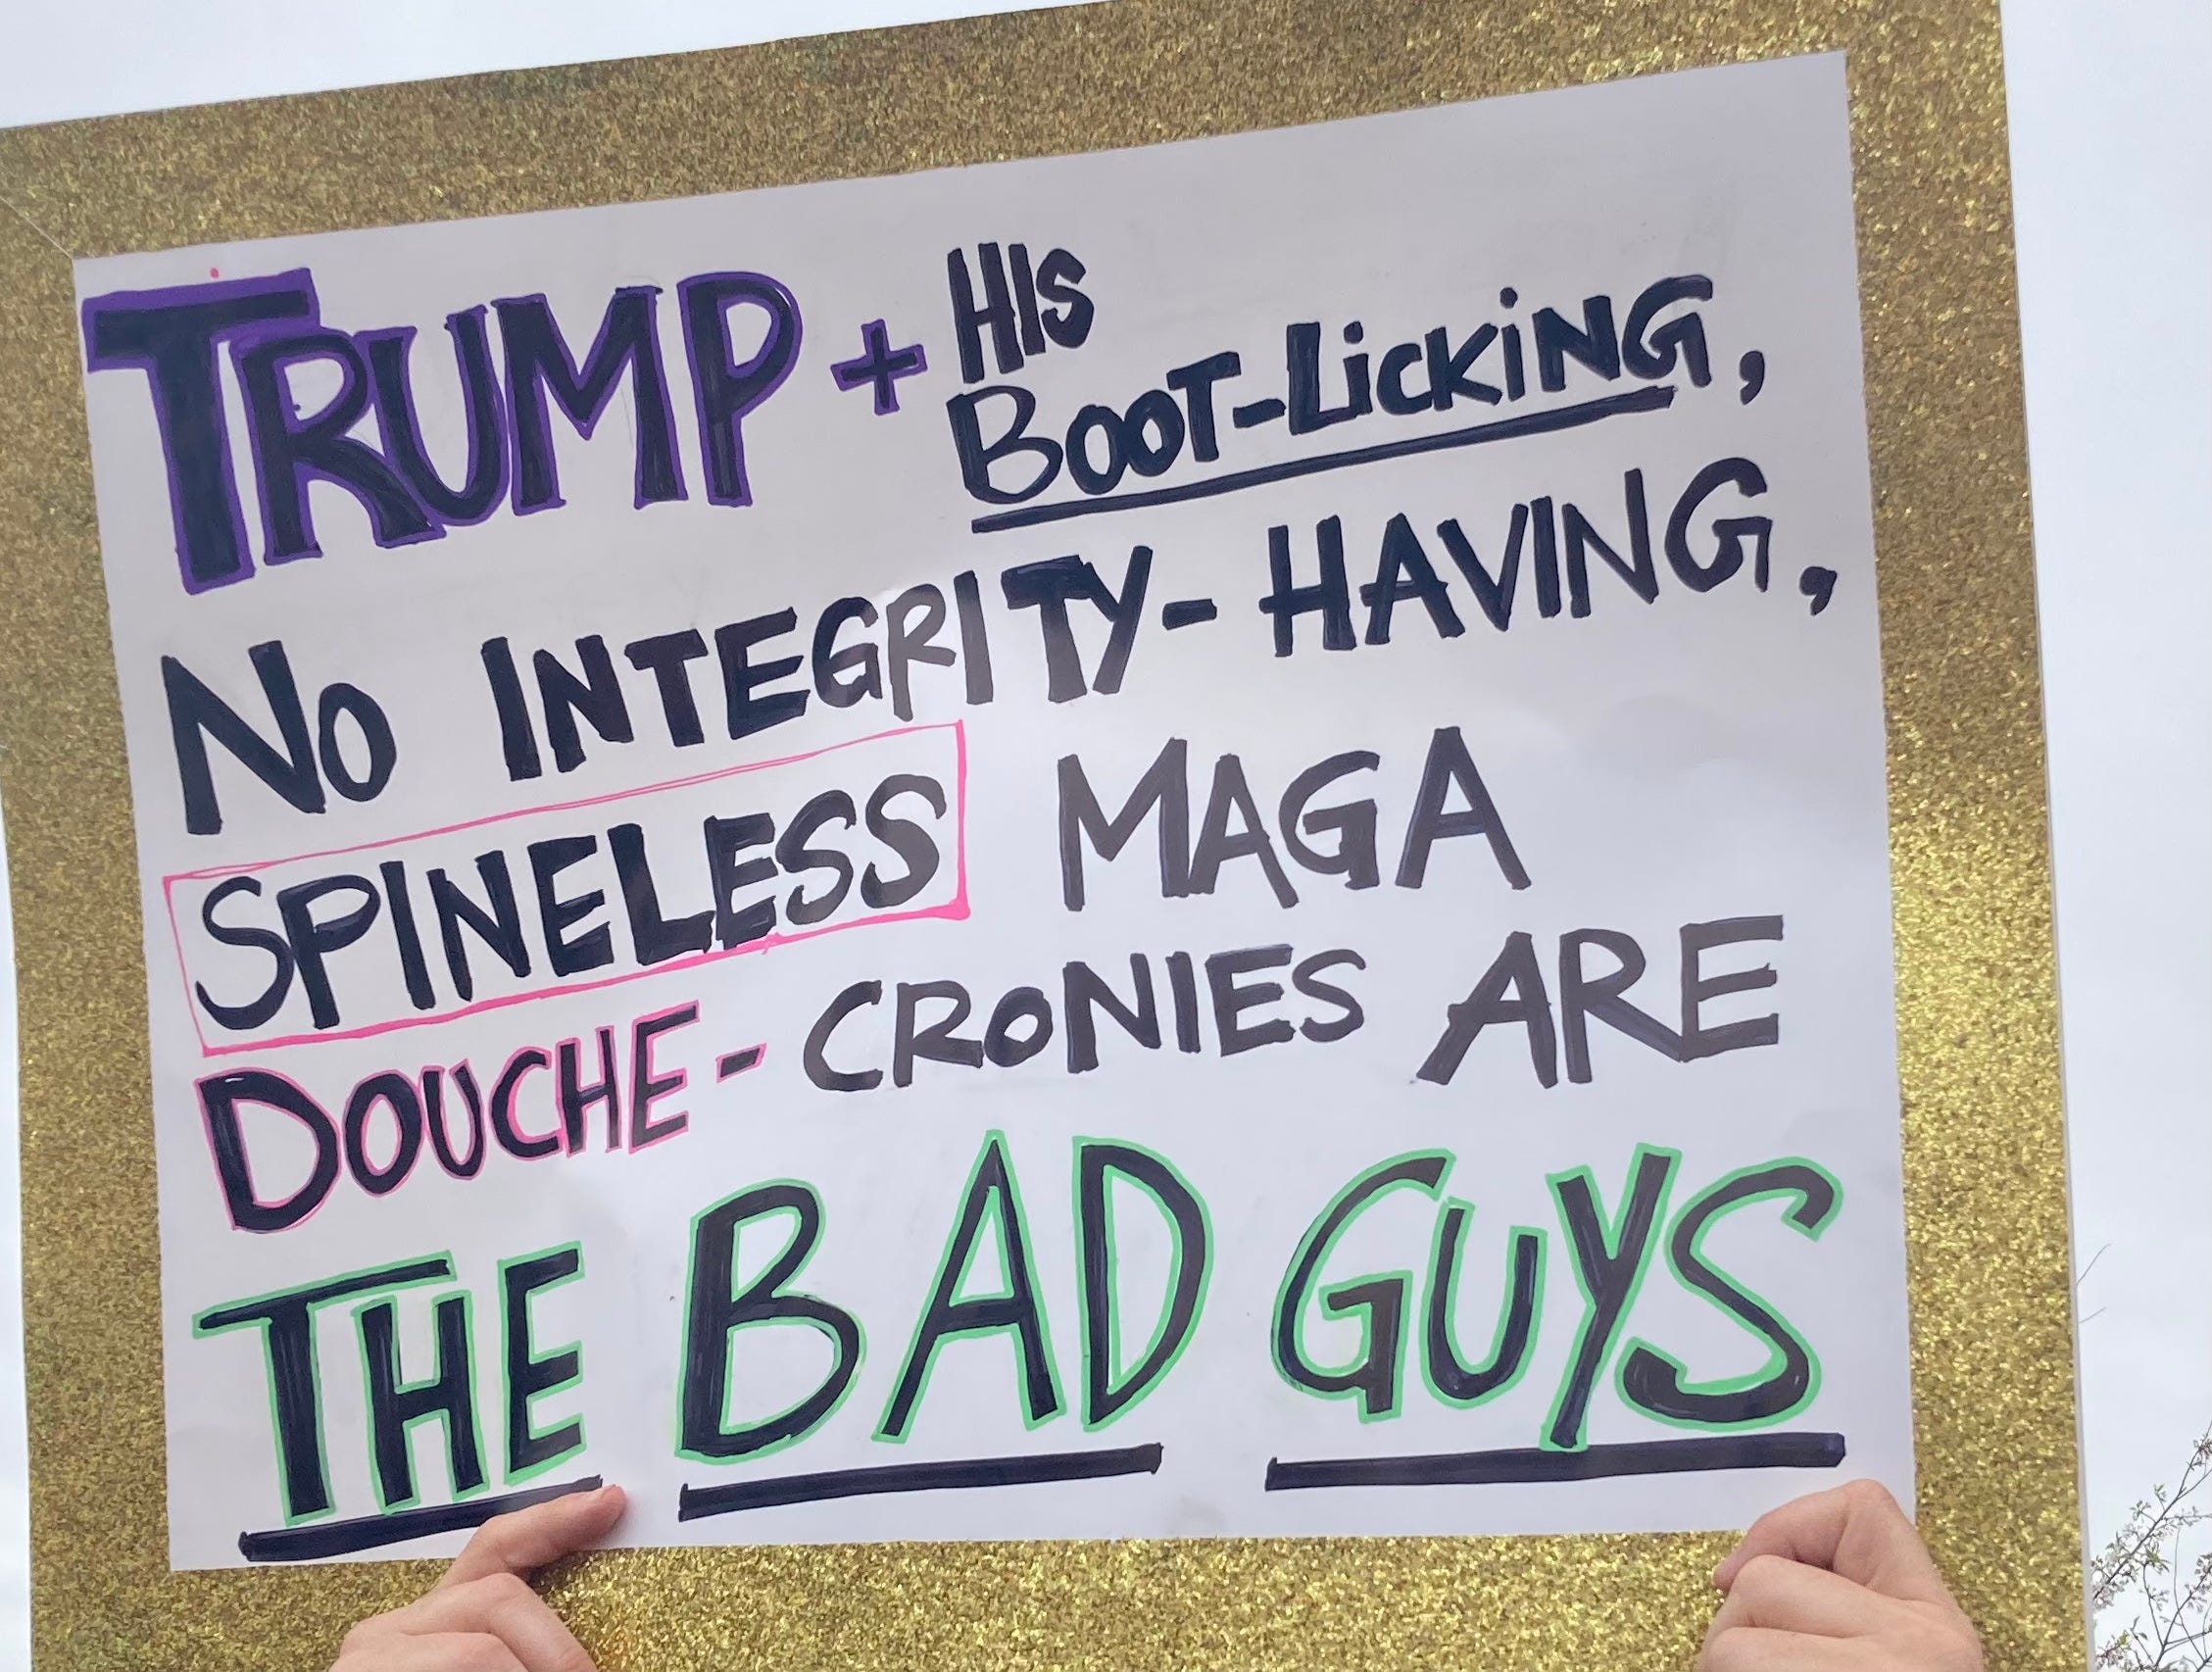 TRUMP + HIS
BOOT-LiCKiNG,
NO INTEGRITY-HAVING,
SPINELESS MAGA
DOUCHE-CRONIES ARE
THE BAD GUYS